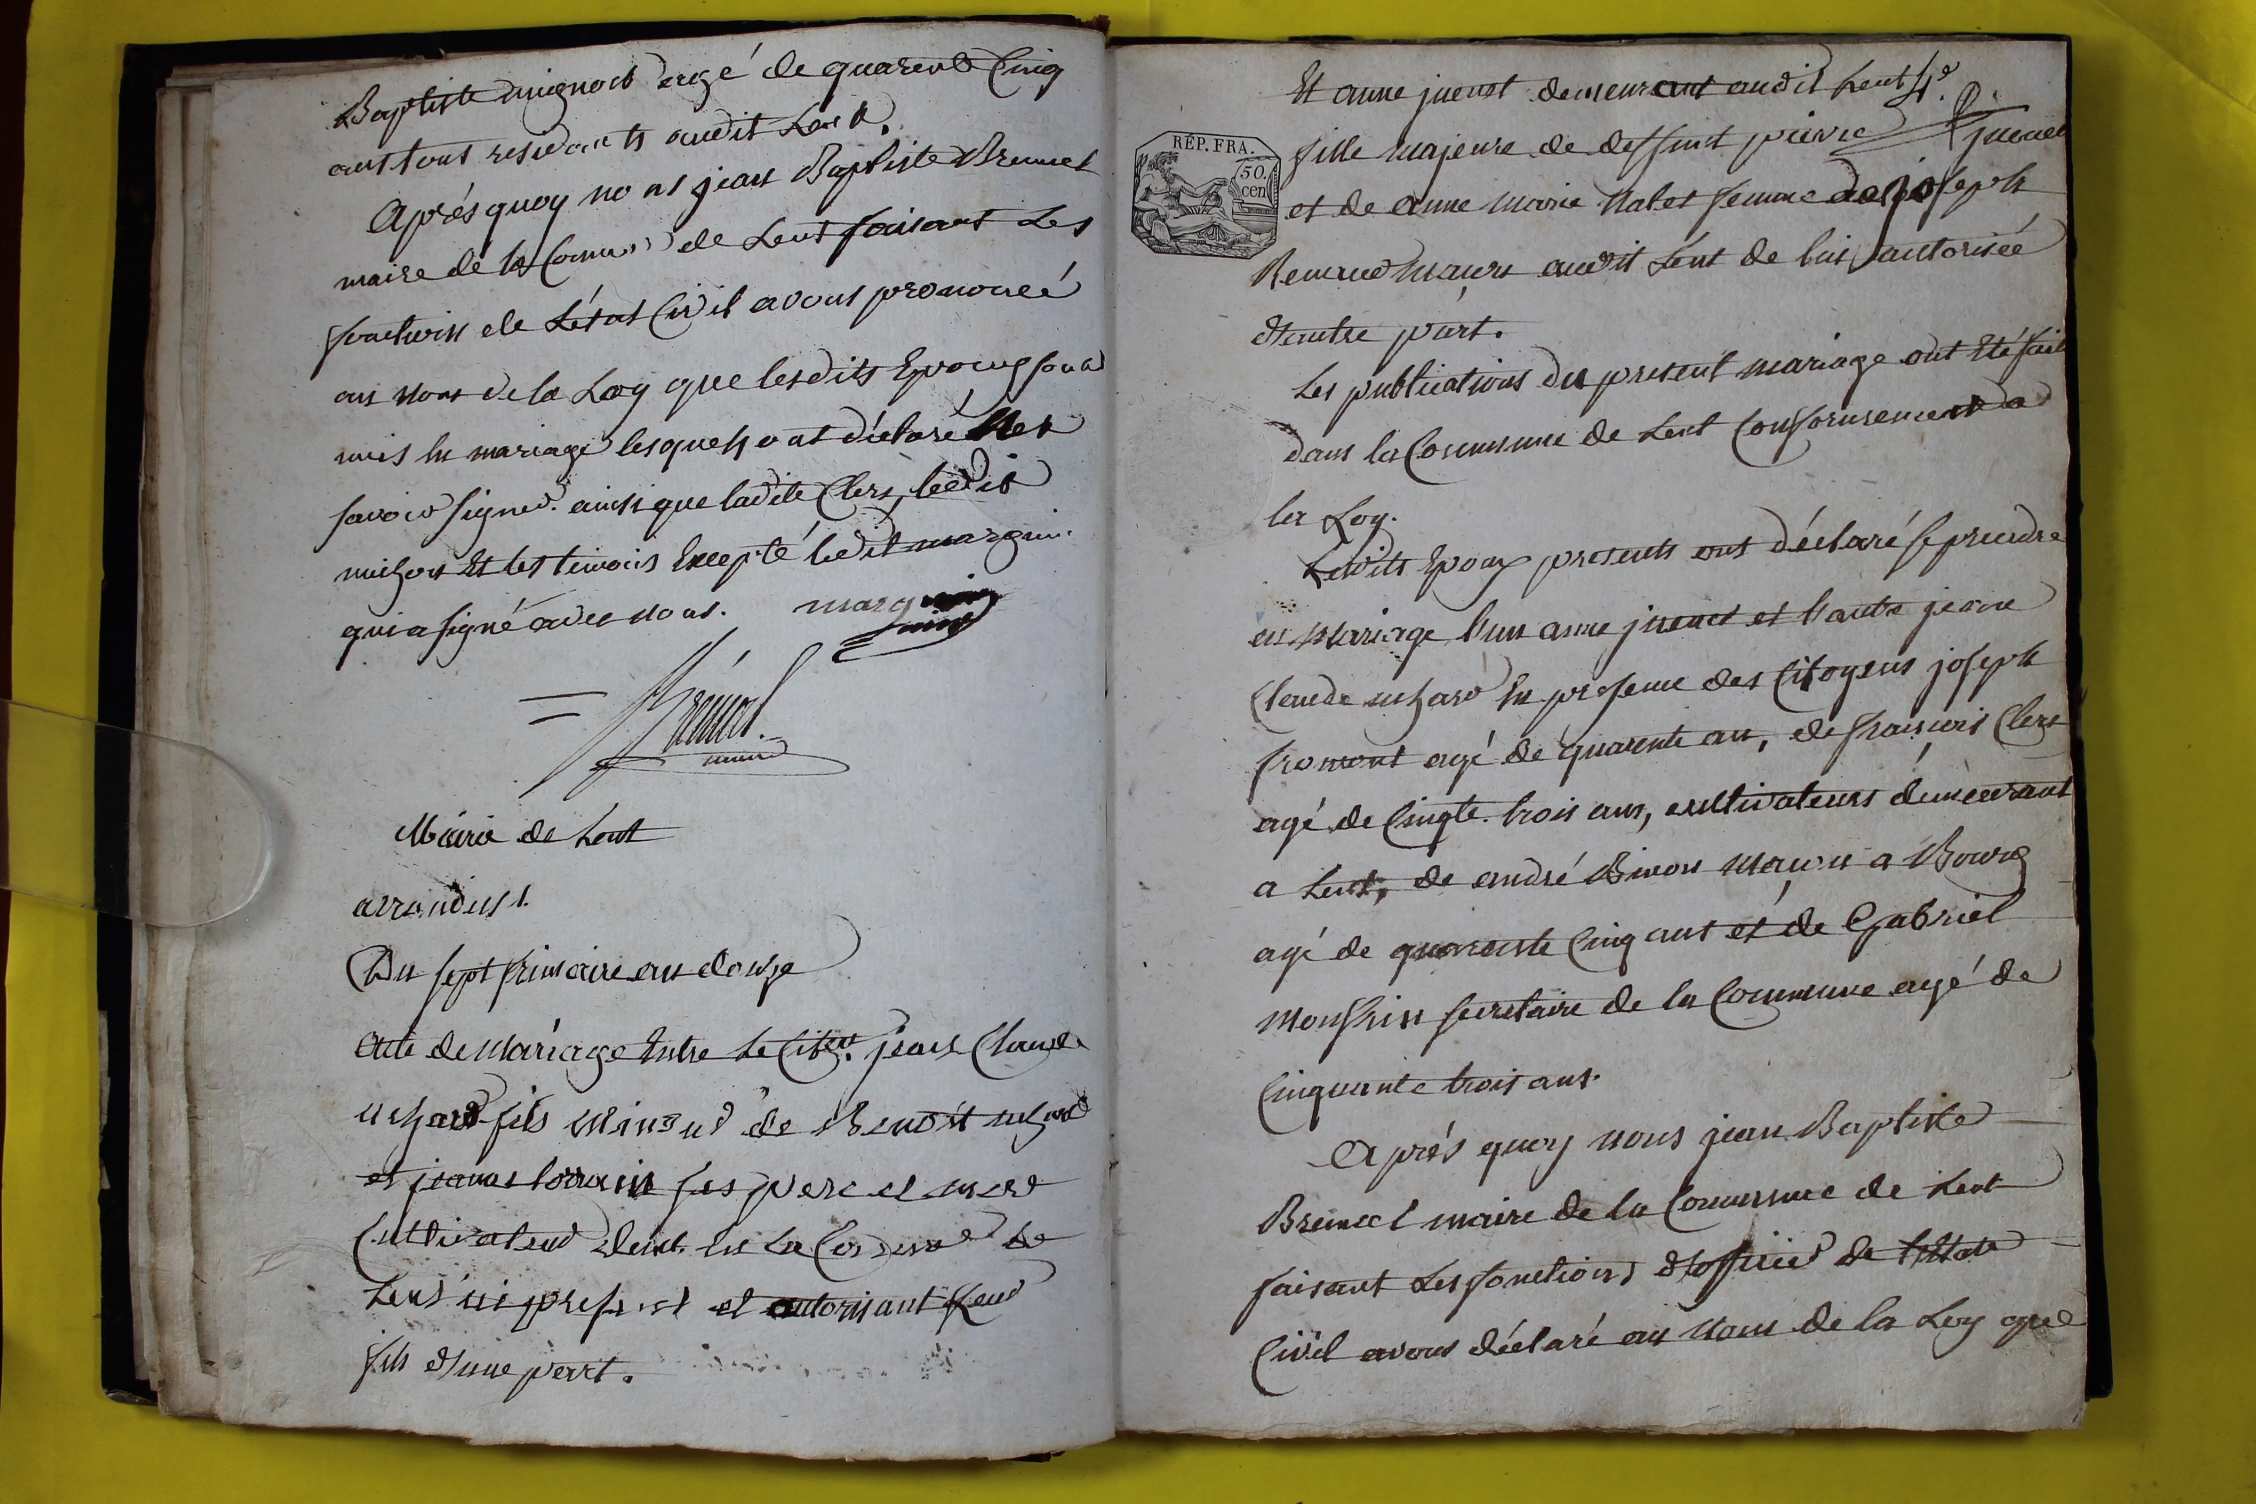 Baptiste mignot agé de quarente Cinq
ans tous residants audit Lent.
Aprés quoy nous jean Baptiste Brenuel
maire de la Comm de Lent faisant Les
fonctions de Létat Civil avons prononcé
au nom de la Loy que lesdits Epoux sont
unis en mariage lesquels ont déclaré Ne
savoir signer. ainsi que ladite Clerc, ledit
michon Et les temoins Excepté ledit marguin.
qui a signé avec nous. marguin
maire
Mairie de Lent
arrondisst.
Du sept frimaire an douze
Acte de Mariage Entre Le Citen. jean Claude
uchard fils mineur de Benoit uchard
et jeanne lorrain ses pere et mere
Cultivateur demt. en La Commune de
Lent ici present et autorisant Leur
fils d'une part.
RÉP. FRA.
50.
cen
Et anne juenet demeurant audit Lent
fille majeure de deffunt pierre juenet
et de anne marie Nalet femme de joseph
Renaud maçon audit Lent de lui autorisée
d'autre part.
Les publications du present mariage ont Eté fait
dans la Commune de Lent Conformement a
la Loy.
Lesdits Epoux presents ont déclaré se prendre
en Mariage l'un anne juenet et l'autre jeane
Claude uchard En presence des Citoyens joseph
fromont agé de quarente an, de françois Clerc
agé de Cinqte. trois ans, cultivateurs demeurant
a Lent, de andré Binon Maçon a Bourg
agé de quarente Cinq ans et de Gabriel
Monfrin secretaire de la Commune agé de
Cinquante trois ans.
Aprés quoy nous jean Baptiste
Brenuel maire de la Commune de Lent
faisant Les fonctions d'officier de l'Etat
Civil avons déclaré au Nom de la Loy que